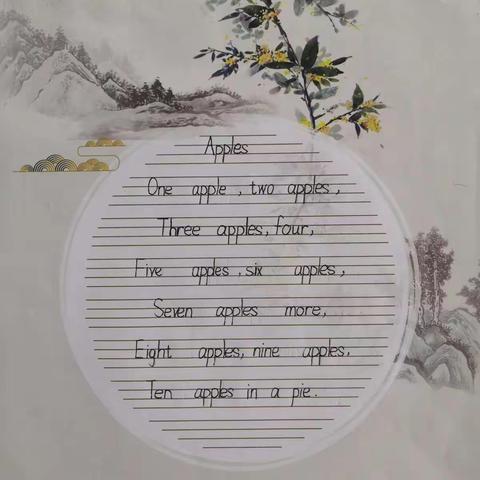 Apples
One apple , two apples ,
Three apples, four,
Five apples , six apples ,
Seven apples more,
Eight apples, nine apples,
Ten apples in a pie.